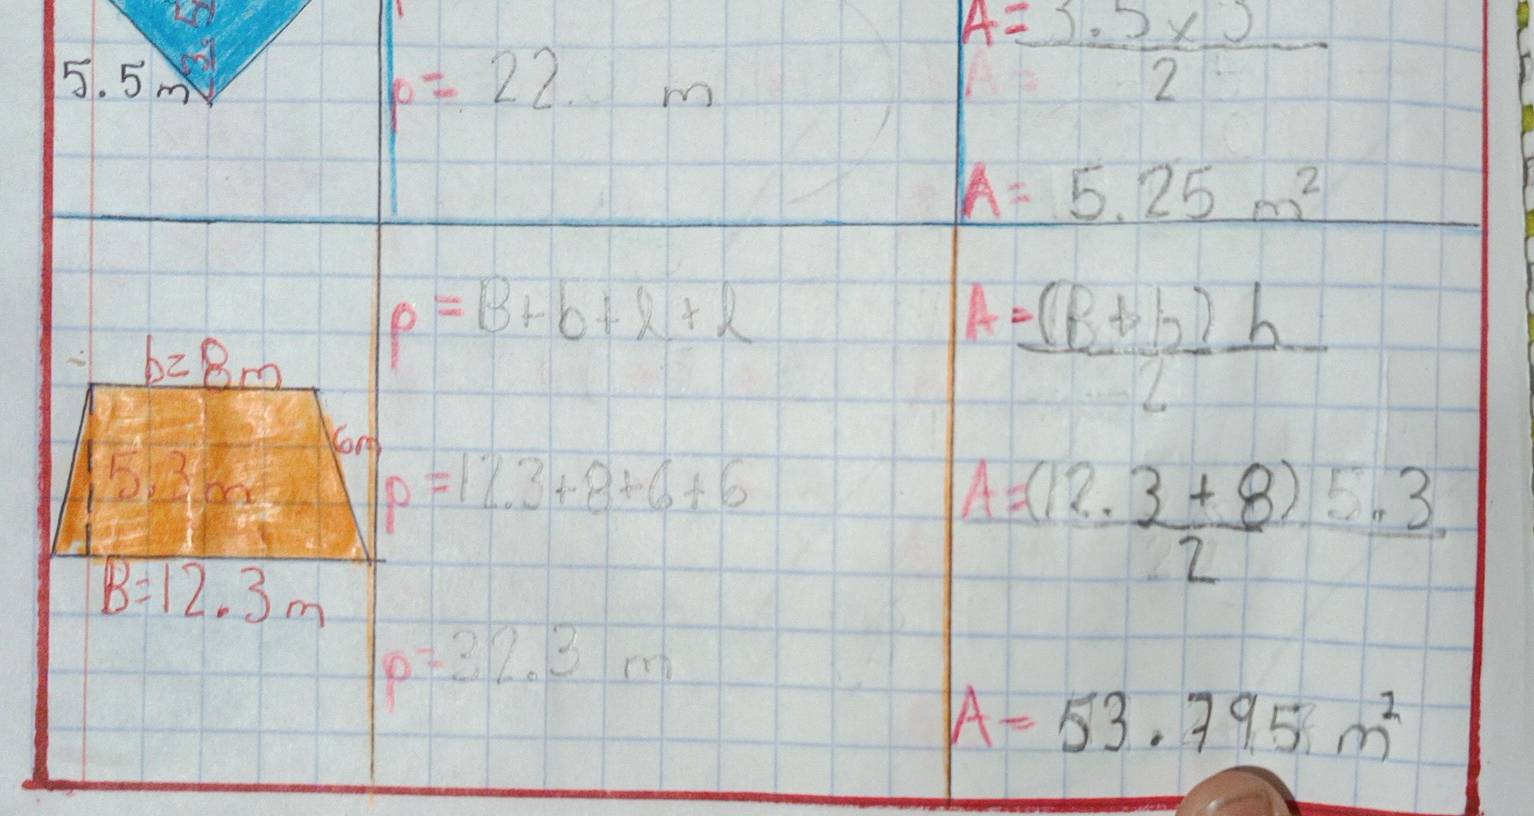 3.5
5.5 m
p = 22 m
A = 3.5 x 3
2
A =
A = 5.25 m²
b = 8 m
6m
5.3 m
B = 12.3 m
p = B + b + l + l
p = 12.3 + 8 + 6 + 6
p = 32.3 m
A = (B + b) h
2
A = (12.3 + 8) 5.3
2
A = 53.795 m²